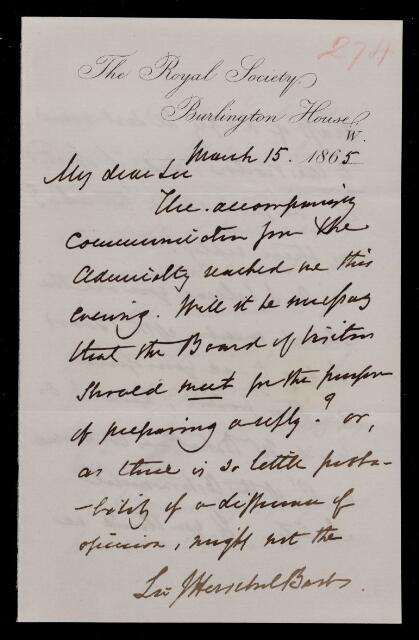 274
The Royal Society
Burlington House
W.
March 15. 1865
My dear Sir
The accompanying
Communication from the
Admiralty reached me this
evening. Will it be necessary
that the Board of Visitors
should meet for the purpose
of preparing a reply? or,
as there is so little proba-
-bility of a difference of
opinion, might not the
Sir J Herschel Bart.